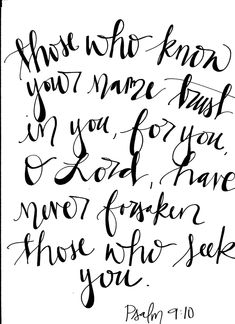 those who know
your name trust
in you, for you,
O Lord, have
never forsaken
those who seek
you.
Psalm 9:10